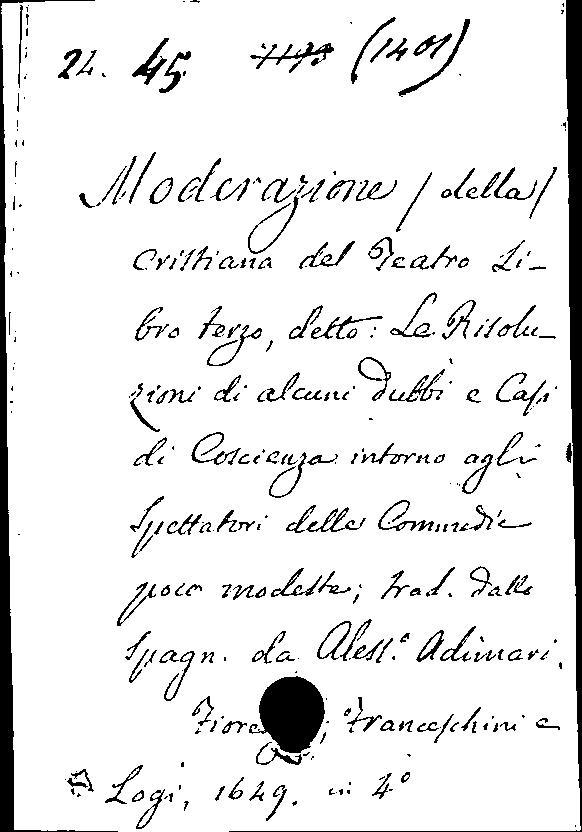 24. 45 7193 (1401)
Moderazione / della /
Cristiana del Teatro Li-
bro terzo, detto: Le Risolu-
zioni di alcuni Dubbi e Casi
di Coscienza intorno agli
Spettatori delle Commedie
poco modeste; trad. dallo
Spagn. da Aless.º Adimari.
Fiore ; Franceschini e
Logi, 1649. in 4º